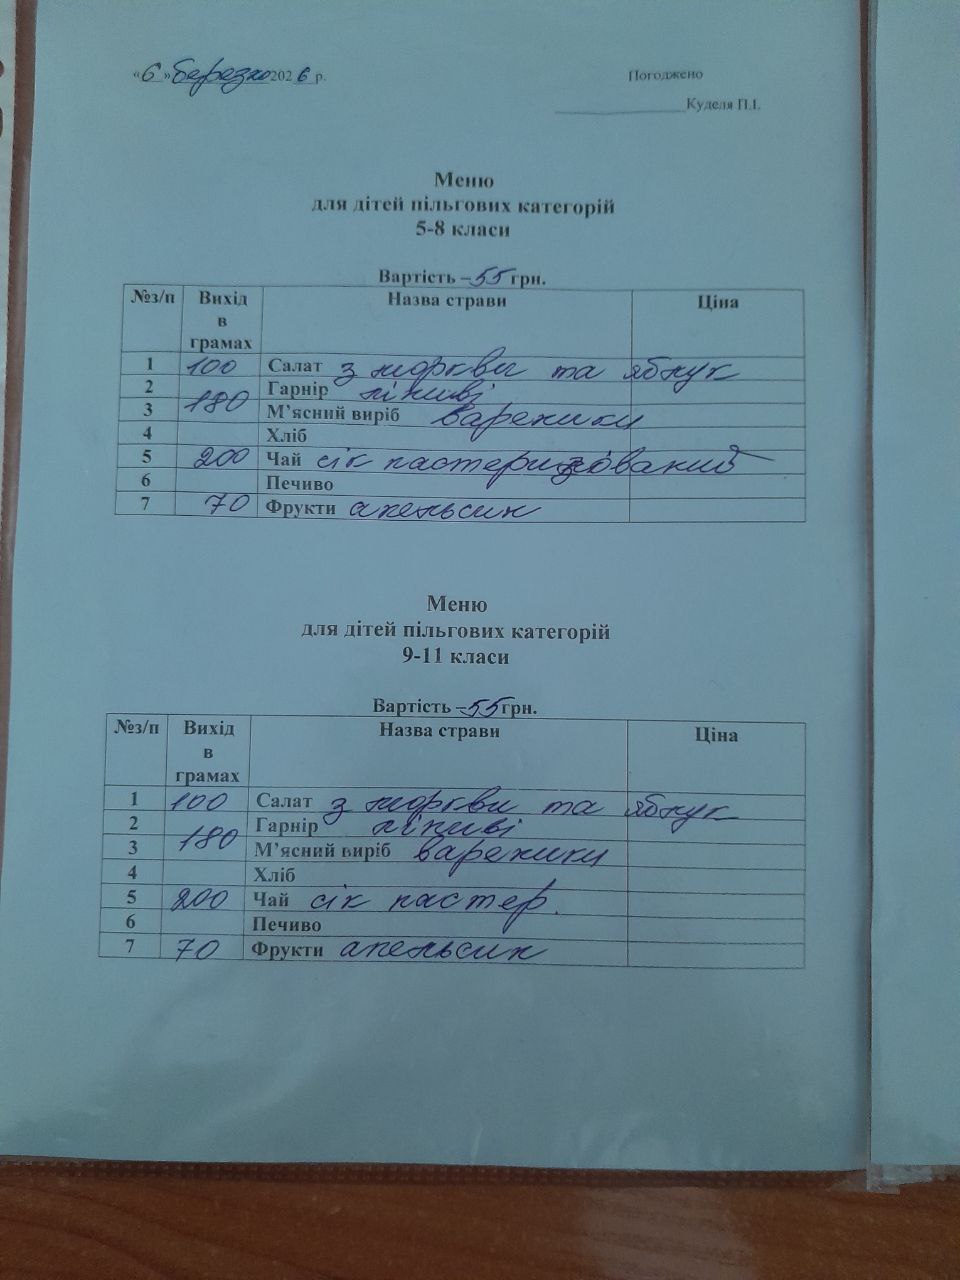 «6» березня 2026 р.
Погоджено
Куделя П.І.
Меню
для дітей пільгових категорій
5-8 класи
Вартість – 55 грн.
№з/п Вихід в грамах Назва страви Ціна
1 100 Салат з моркви та яблук
2 Гарнір ліниві
180
3 М'ясний виріб вареники
4 Хліб
5 200 Чай сік пастеризований
6 Печиво
7 70 Фрукти апельсин
Меню
для дітей пільгових категорій
9-11 класи
Вартість – 55 грн.
№з/п Вихід в грамах Назва страви Ціна
1 100 Салат з моркви та яблук
2 Гарнір ліниві
180
3 М'ясний виріб вареники
4 Хліб
5 200 Чай сік пастер.
6 Печиво
7 70 Фрукти апельсин